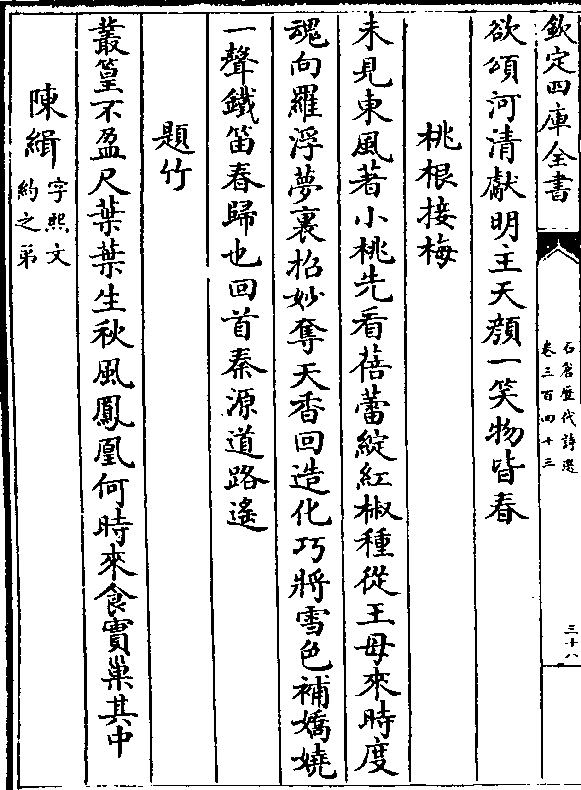 欽定四庫全書
石倉歷代詩選
卷三百四十三
三十八
欲頌河清獻明主天顔一笑物皆春
桃根接梅
未見東風著小桃先看蓓蕾綻紅椒種從王母來時度
魂向羅浮夢裏招妙奪天香回造化巧將雪色補嬌嬈
一聲鐵笛春歸也回首秦源道路遙
題竹
叢篁不盈尺葉葉生秋風鳳凰何時來食實巢其中
陳緝
字熙文
約之弟